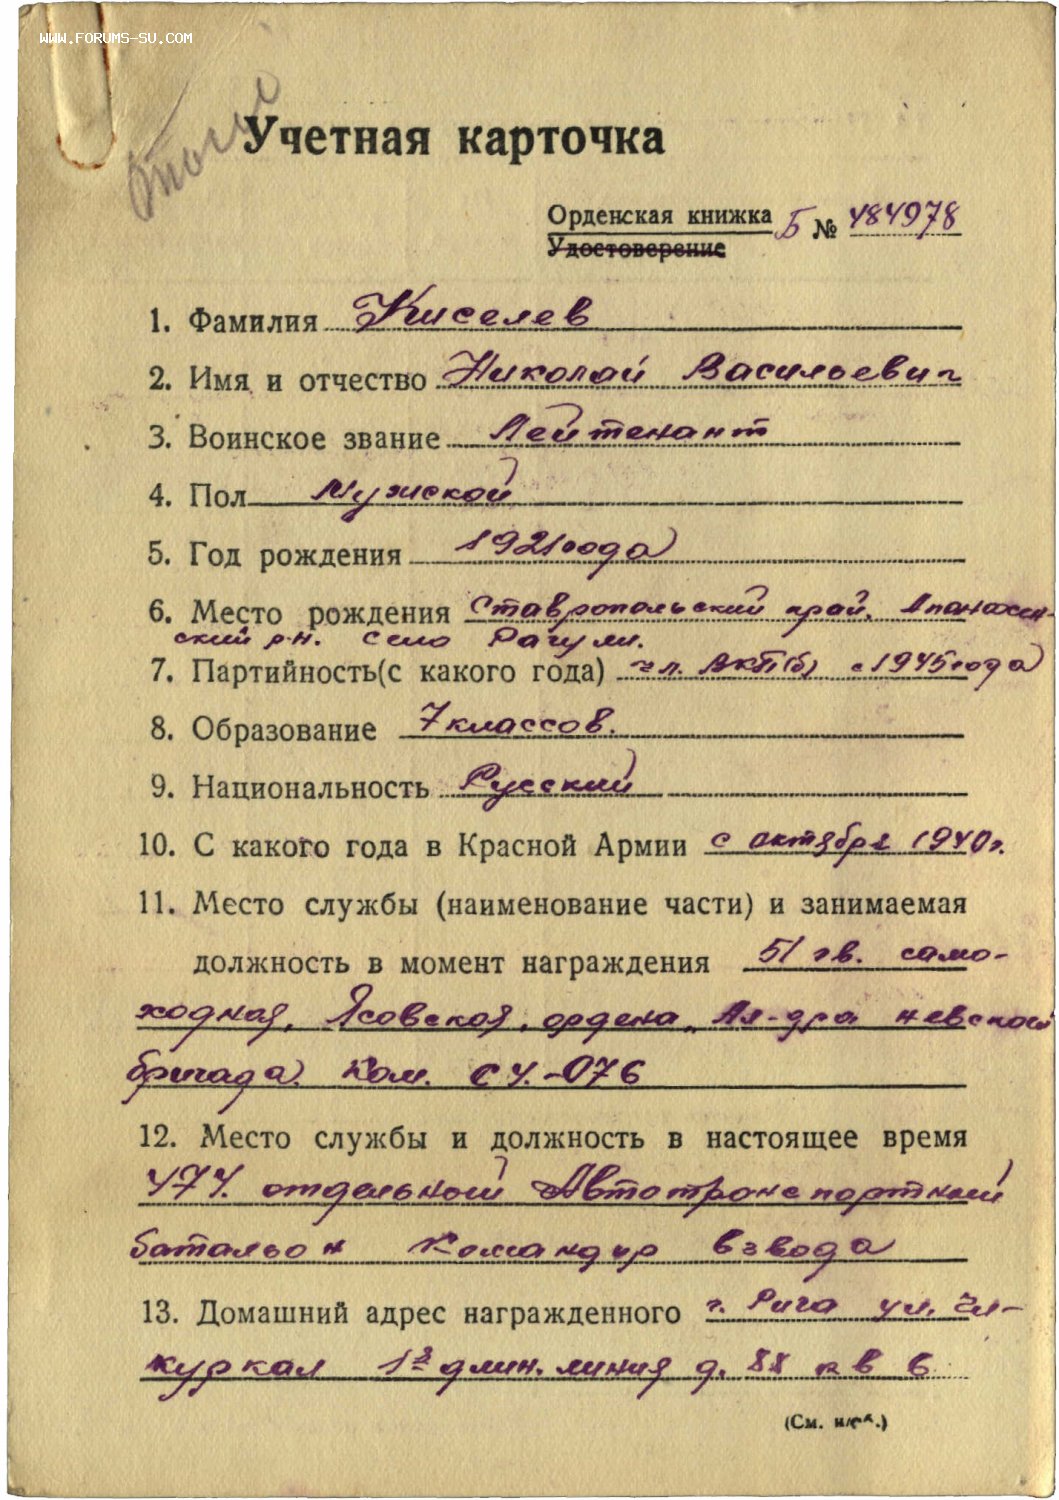 WWW.FORUMS-SU.COM
Учетная карточка
Орденская книжка Б № 484978
Удостоверение
1. Фамилия Киселев
2. Имя и отчество Николай Васильевич
3. Воинское звание Лейтенант
4. Пол Мужской
5. Год рождения 1921 года
6. Место рождения Ставропольский край, Апанасен-
ский р-н. село Рагули.
7. Партийность(с какого года) чл. ВКП(б) с 1945 года
8. Образование 7 классов.
9. Национальность Русский
10. С какого года в Красной Армии с октября 1940 г.
11. Место службы (наименование части) и занимаемая
должность в момент награждения 51 гв. само-
ходная, Ясовская, ордена, Ал-дра невского
бригада. Ком. СУ.-076
12. Место службы и должность в настоящее время
474. отдельный Автотранспортный
батальон Командир взвода
13. Домашний адрес награжденного г. Рига ул.
1я длин. линия д. 88 кв 6
(См. н/об.)